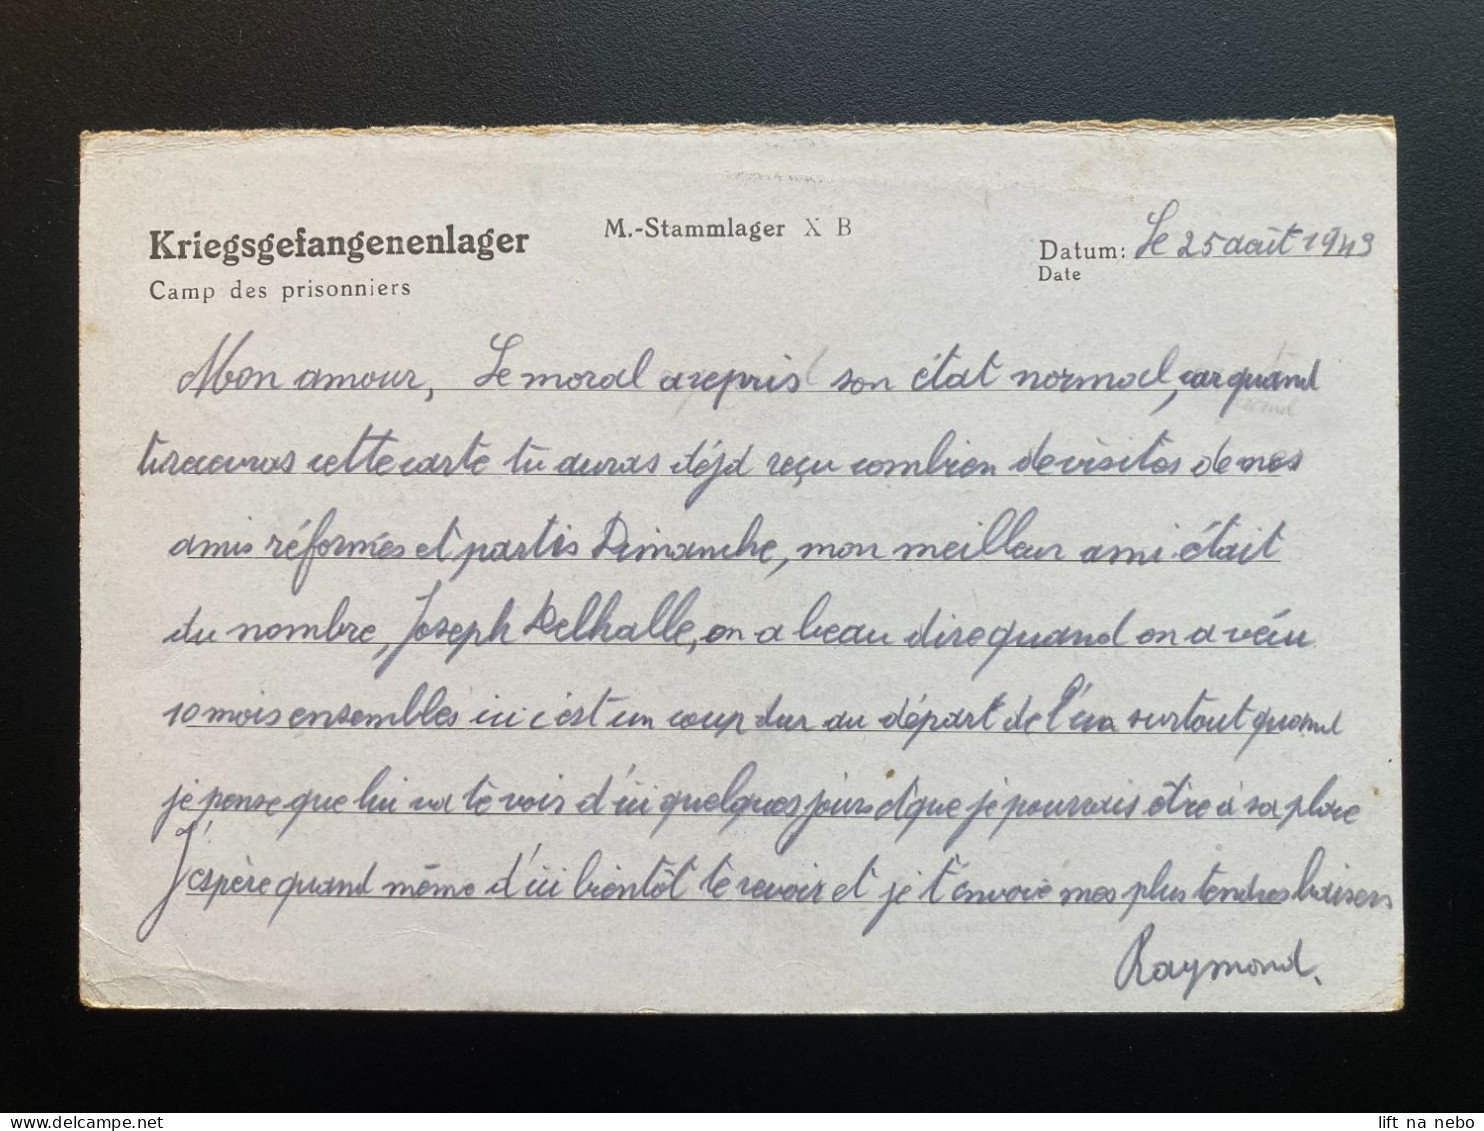 Kriegsgefangenenlager
Camp des prisonniers
M.-Stammlager X B
Datum: Le 25 août 1943
Date
Mon amour, Le moral a repris son état normal, car quand
tu recevras cette carte tu auras déjà reçu combien de visites de mes
amis réformés et partis Dimanche, mon meilleur ami était
du nombre, Joseph Delhalle, on a beau dire quand on a vécu
10 mois ensembles ici c'est un coup dur au départ de l'un surtout quand
je pense que lui va te voir d'ici quelques jours et que je pourrais être à sa place
J'espère quand même d'ici bientôt te revoir et je t'envoie mes plus tendres baisers
Raymond.
lift na nebo